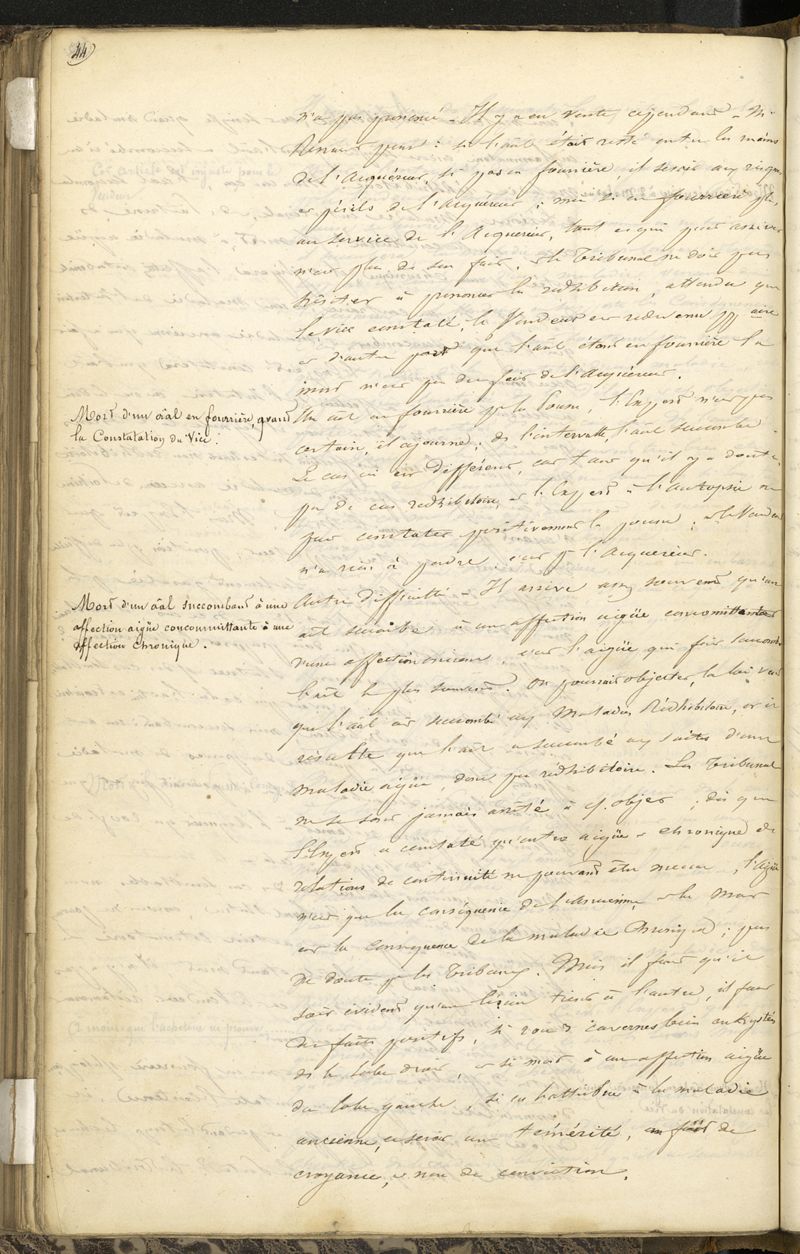 44
n'a pas prononcé - Il y a eu vente cependant - Mr
Renaud pense : si l'aāl était resté entre les mains
de l'Acquéreur, si pas en fourrière, il serait aux risques
et périls de l'acquéreur ; mais si en fourrière
au service de l'Acquéreur, tout ce qui peut arriver
n'est plus de son fait, et le Tribunal ne doit pas
hésiter à prononcer la redhibition, attendu que
le vice constaté, le Vendeur est redevenu ppr aire
et d'autre part que l'aāl étant en fourrière la
mort n'est pas du fait de l'acquéreur.
Mort d'un aāl en fourrière, avant
la Constatation du Vice.
Un aāl en fourrière pr la Pousse. l'Expert n'est pas
certain, il ajourne ; ds l'intervalle, l'aāl succombe -
Le cas ici est différent, car tant qu'il y a doute,
pas de cas redhibitoire, et l'Expert à l'autopsie ne
peut constater positivement la pousse ; et le Vendeur
n'a rien à perdre, c'est pr l'acquéreur.
Mort d'un aāl succombant à une
affection aigüe concommittante à une
affection chronique.
Autre difficulté - Il arrive assez souvent qu'un
aāl succombe à une affection aigüe concomittante
d'une affection ancienne, c'est l'aigüe qui fait succomber
l'aāl le plus souvent. On pourrait objecter, la loi veut
que l'aāl ait succombé aux Maladies Rédhibitoires, or il
résulte que l'aāl a succombé aux suites d'une
maladie aigüe, donc pas rédhibitoire. Les Tribunaux
ne se sont jamais arrêté à cet objet ; dès que
l'Expert a constaté qu'entre aigüe et chronique des
relations de continuité ne pouvant être méconnues, l'aigüe
n'est que la conséquence de l'ancienne, et la mort
est la conséquence de la maladie chronique ; pas
de doute pr les Tribunaux. Mais il faut qu'il
soit évident qu'une lésion tient à l'autre, il faut
des faits positifs, si vous cavernes bien enkystées
ds le lobe droit, et si mort à une affection aigüe
du lobe gauche, si on l'attribue à la maladie
ancienne, ce serait une témérité, de
croyance, et non de conviction.